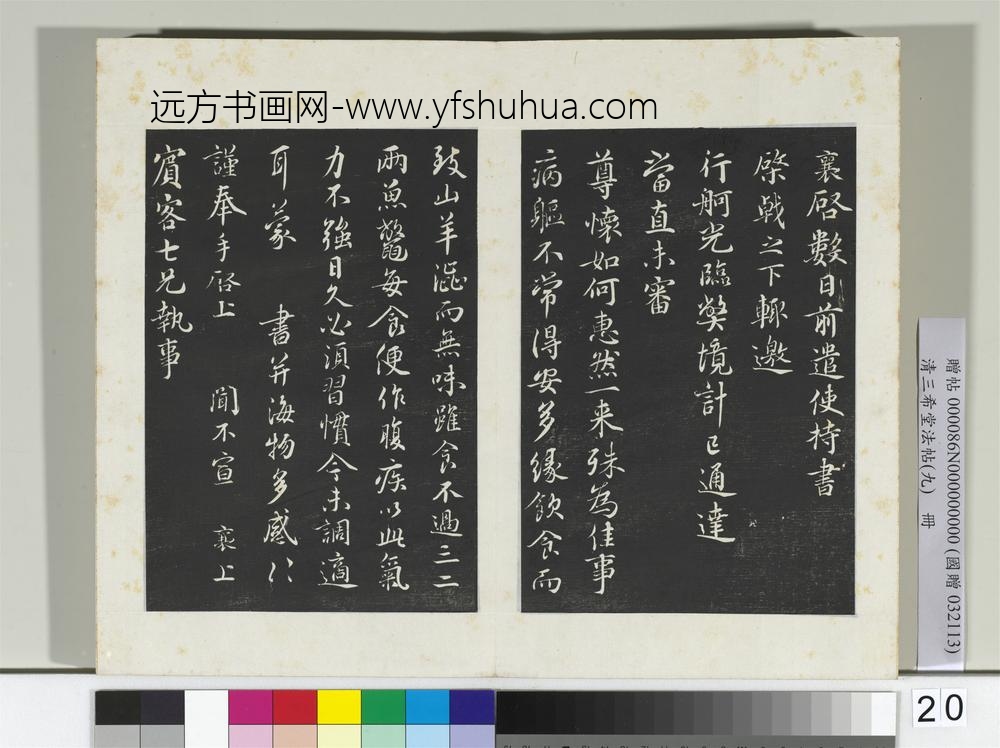 远方书画网-www.yfshuhua.com
襄啓數日前遣使持書
棨戟之下輙邀
行舸光臨弊境計已通達
當直未審
尊懷如何惠然一来殊為佳事
病軀不常得安多緣飲食而
致山羊澁而無味雖食不過三二
兩魚鼈每食便作腹疾以此氣
力不強日久必須習慣今未調適
耳蒙 書并海物多感〻
謹奉手啓上 聞不宣 襄上
賓客七兄執事
贈帖 000086N000000000 (國贈 032113)
清三希堂法帖(九) 冊
20